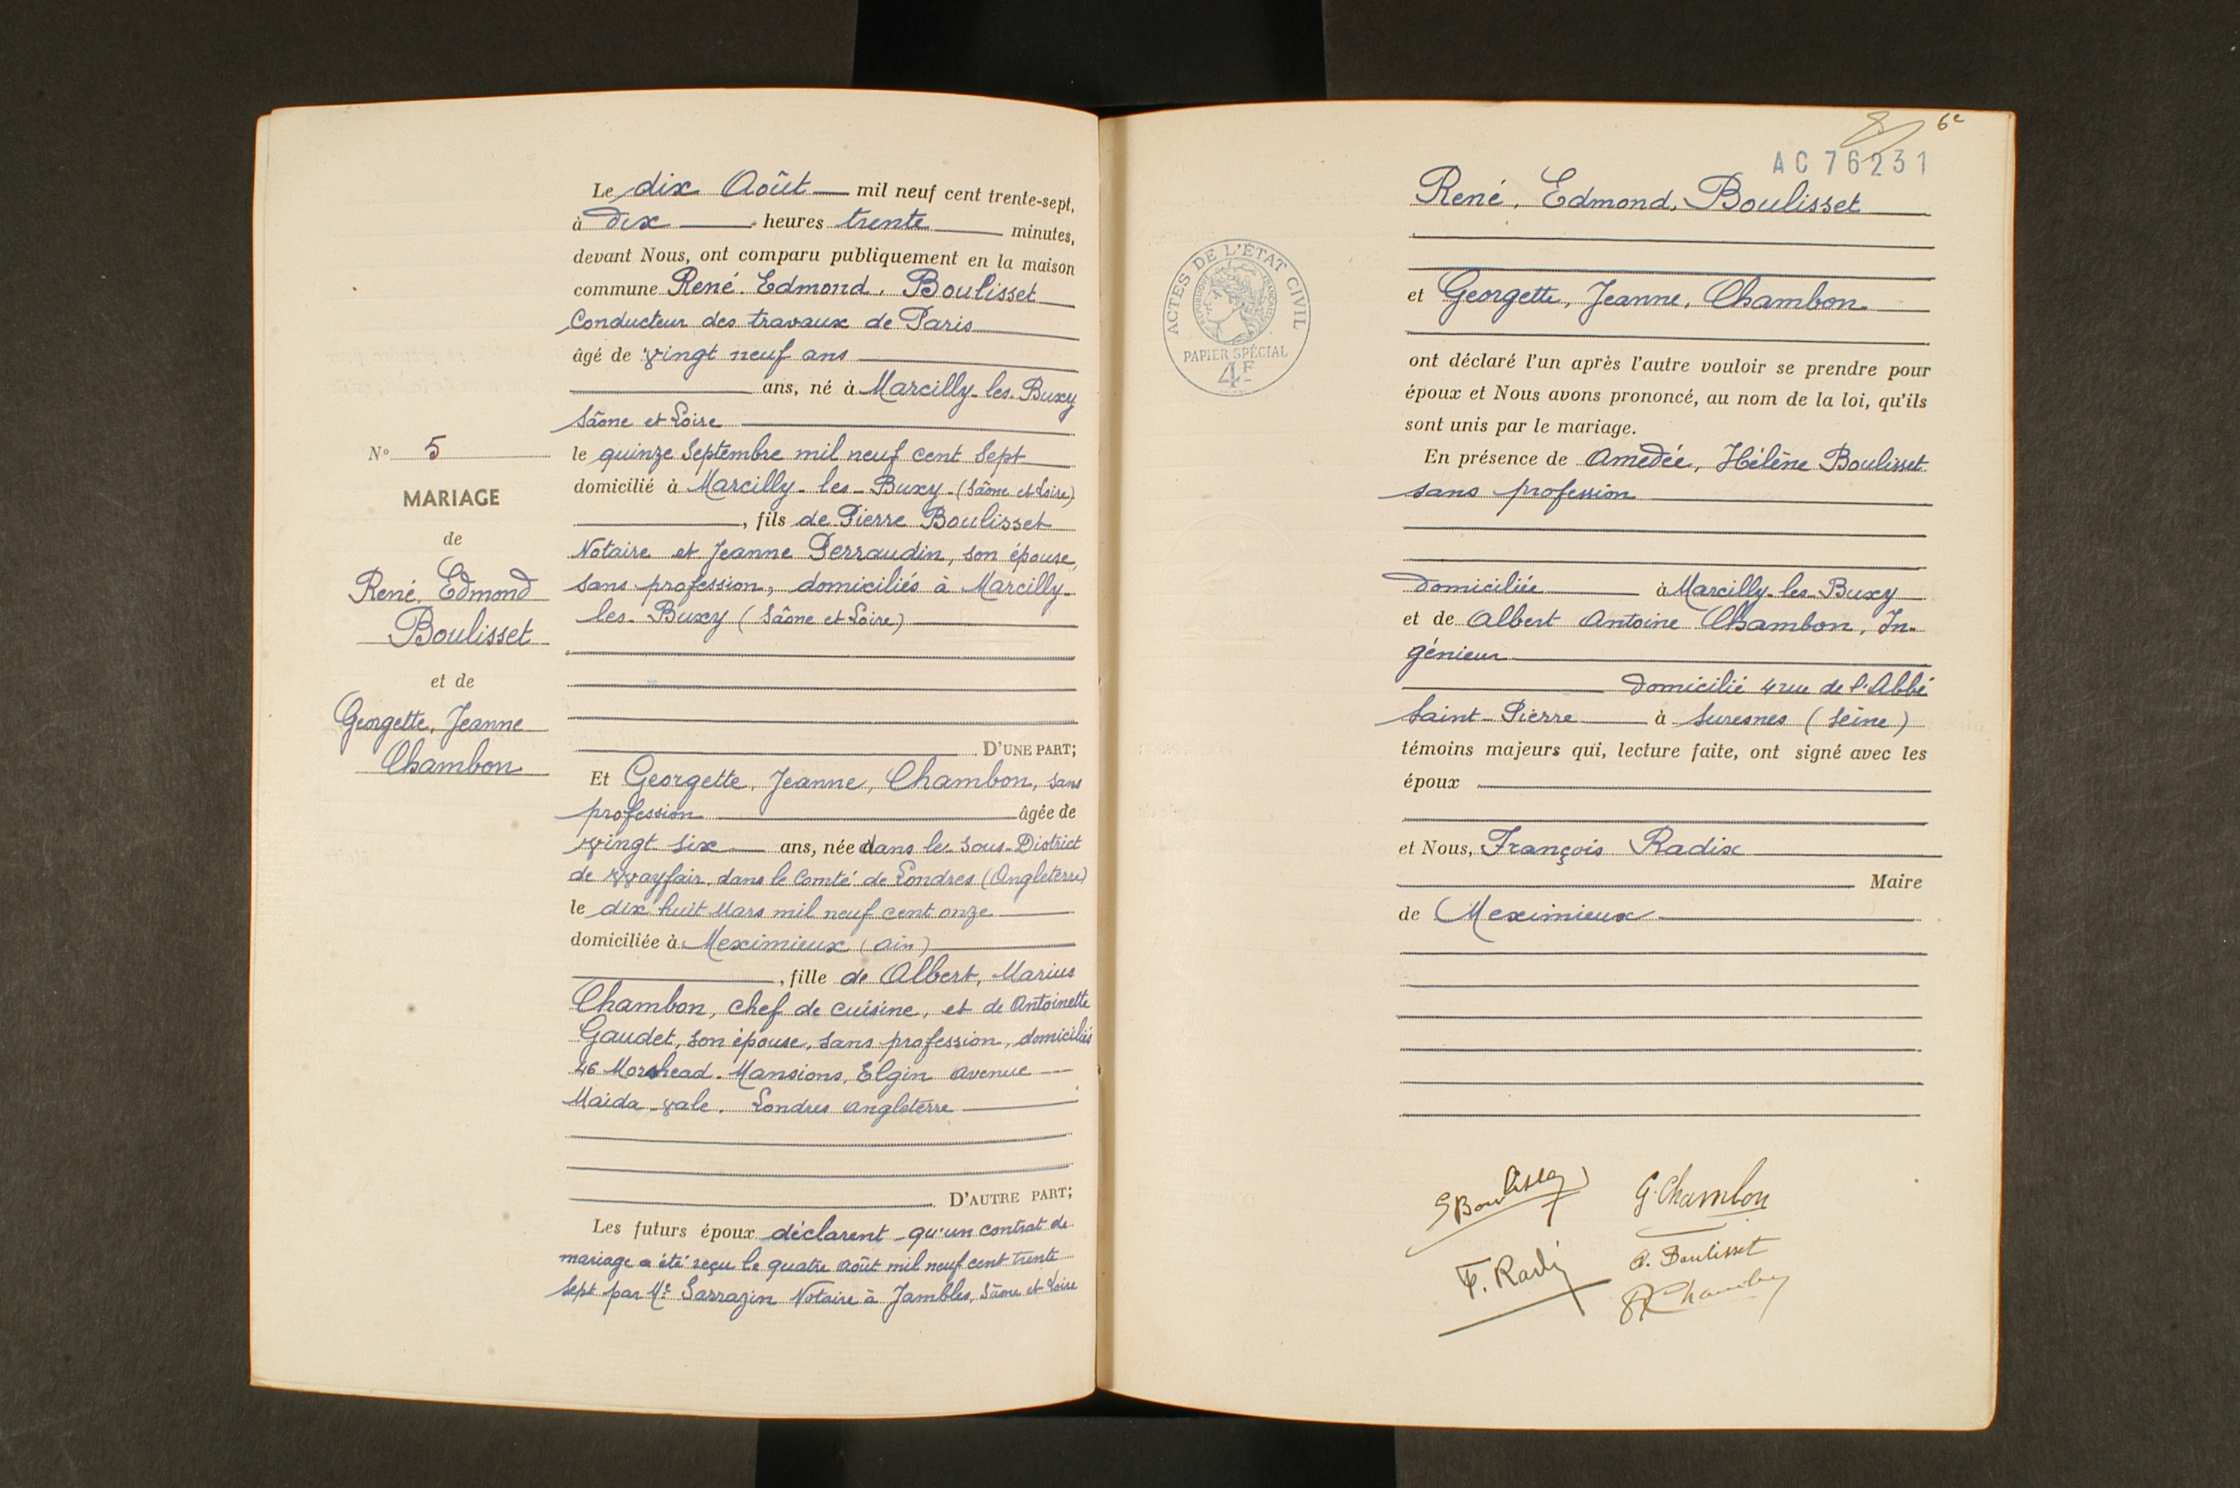 Le dix Août mil neuf cent trente-sept,
à dix heures trente minutes,
devant Nous, ont comparu publiquement en la maison
commune René. Edmond. Boulisset
Conducteur des travaux de Paris
âgé de vingt neuf ans
ans, né à Marcilly-les-Buxy
Sâone et Loire
le quinze Septembre mil neuf cent Sept
domicilié à Marcilly-les-Buxy-(Sâone et Loire)
, fils de Pierre Boulisset
Notaire et Jeanne Perraudin, son épouse,
sans profession, domiciliés à Marcilly-
les-Buxy (Sâone et Loire)
D'UNE PART;
Et Georgette, Jeanne, Chambon, sans
profession âgée de
vingt six ans, née dans le Sous-District
de Mayfair. dans le Comté de Londres (Angleterre)
le dix huit Mars mil neuf cent onze
domiciliée à Meximieux (Ain)
, fille de Albert, Marius
Chambon, chef de cuisine, et de Antoinette
Gaudet, son épouse, sans profession, domiciliés
46 Morshead-Mansions, Elgin Avenue
Maida-vale. Londres Angleterre
D'AUTRE PART;
Les futurs époux déclarent qu'un contrat de
mariage a été reçu le quatre août mil neuf cent trente
sept par Me Sarrazin Notaire à Jambles, Sâone et Loire
No 5
MARIAGE
de
René. Edmond
Boulisset
et de
Georgette, Jeanne
Chambon
6e
AC 76231
René, Edmond, Boulisset
et Georgette, Jeanne, Chambon
ont déclaré l'un après l'autre vouloir se prendre pour
époux et Nous avons prononcé, au nom de la loi, qu'ils
sont unis par le mariage.
En présence de Amédée, Hélène Boulisset
sans profession
domiciliée à Marcilly-les-Buxy
et de Albert Antoine Chambon, In-
génieur
domicilié 4 rue de l'Abbé
Saint-Pierre à Suresnes (Seine)
témoins majeurs qui, lecture faite, ont signé avec les
époux
et Nous, François Radix
Maire
de Meximieux
ACTES DE L'ÉTAT CIVIL
RÉPUBLIQUE FRANÇAISE
PAPIER SPÉCIAL
4F
Boulisset
G. Chambon
F. Radix
A. Boulisset
Chambon